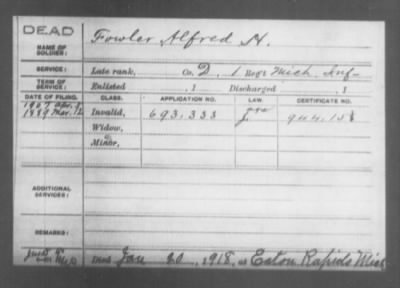 DEAD
NAME OF SOLDIER:
Fowler Alfred H.
SERVICE:
Late rank, Co. D, 1 Reg't Mich. Inf.
TERM OF SERVICE:
Enlisted , 1 Discharged , 1
DATE OF FILING. CLASS. APPLICATION NO. LAW. CERTIFICATE NO.
1907
1889 Mar. 12 Invalid, 693.333 944.151
Widow,
Minor,
ADDITIONAL SERVICES:
REMARKS:
Died Jan 20, 1918, at Eaton Rapids Mich